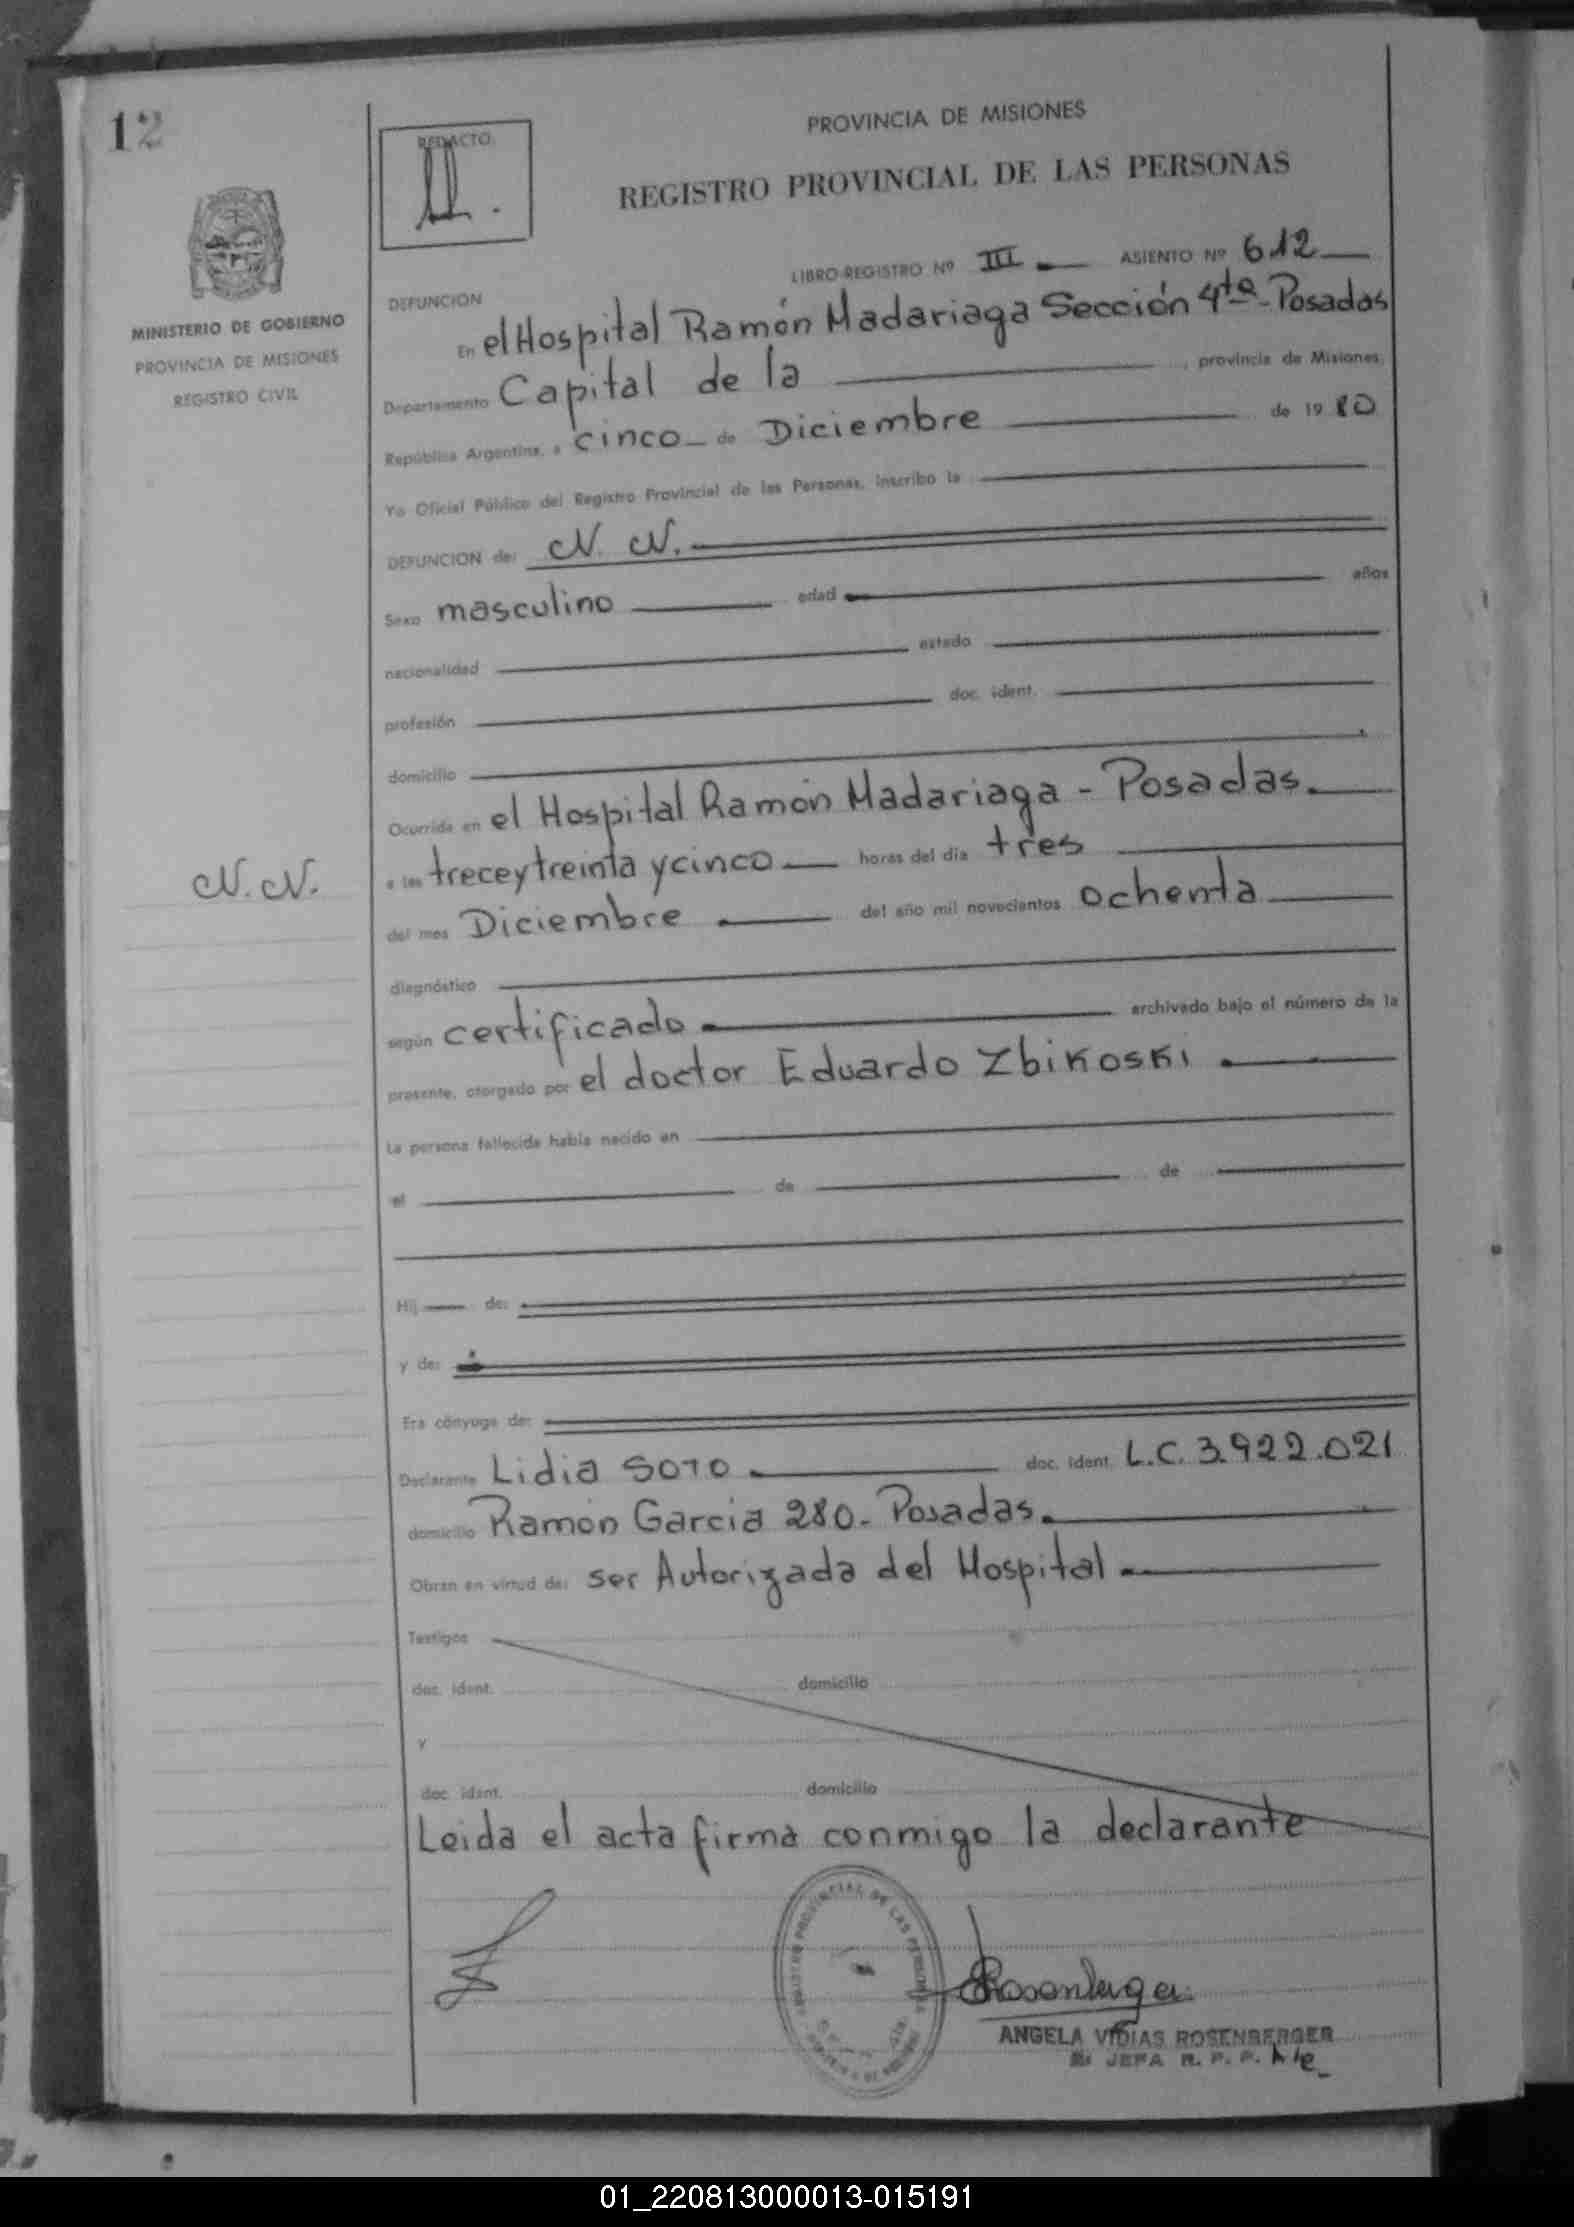 12
MINISTERIO DE GOBIERNO
PROVINCIA DE MISIONES
REGISTRO CIVIL
N. N.
REDACTO
PROVINCIA DE MISIONES
REGISTRO PROVINCIAL DE LAS PERSONAS
LIBRO-REGISTRO Nº III ASIENTO Nº 612
DEFUNCION
En el Hospital Ramón Madariaga Sección 4ta - Posadas
Departamento Capital de la , provincia de Misiones,
República Argentina, a cinco de Diciembre de 1980
Yo Oficial Público del Registro Provincial de las Personas, inscribo la
DEFUNCION de: N. N.
Sexo masculino edad años
nacionalidad estado
profesión doc. ident.
domicilio
Ocurrida en el Hospital Ramón Madariaga - Posadas.
a las trece y treinta y cinco horas del día tres
del mes Diciembre del año mil novecientos ochenta
diagnóstico
según certificado archivado bajo el número de la
presente, otorgado por el doctor Eduardo Zbikoski
La persona fallecida había nacido en
el de de
Hij de:
y de:
Era cónyuge de:
Declarante Lidia Soto doc. ident. L.C. 3.922.021
domicilio Ramón Garcia 280 - Posadas.
Obran en virtud de: ser Autorizada del Hospital
Testigos
doc. ident. domicilio
y
doc. ident. domicilio
Leida el acta firma conmigo la declarante
PROVINCIAL DE LAS PERSONAS
Rosenberger
ANGELA VIDIAS ROSENBERGER
JEFA R. P. P.
01_220813000013-015191